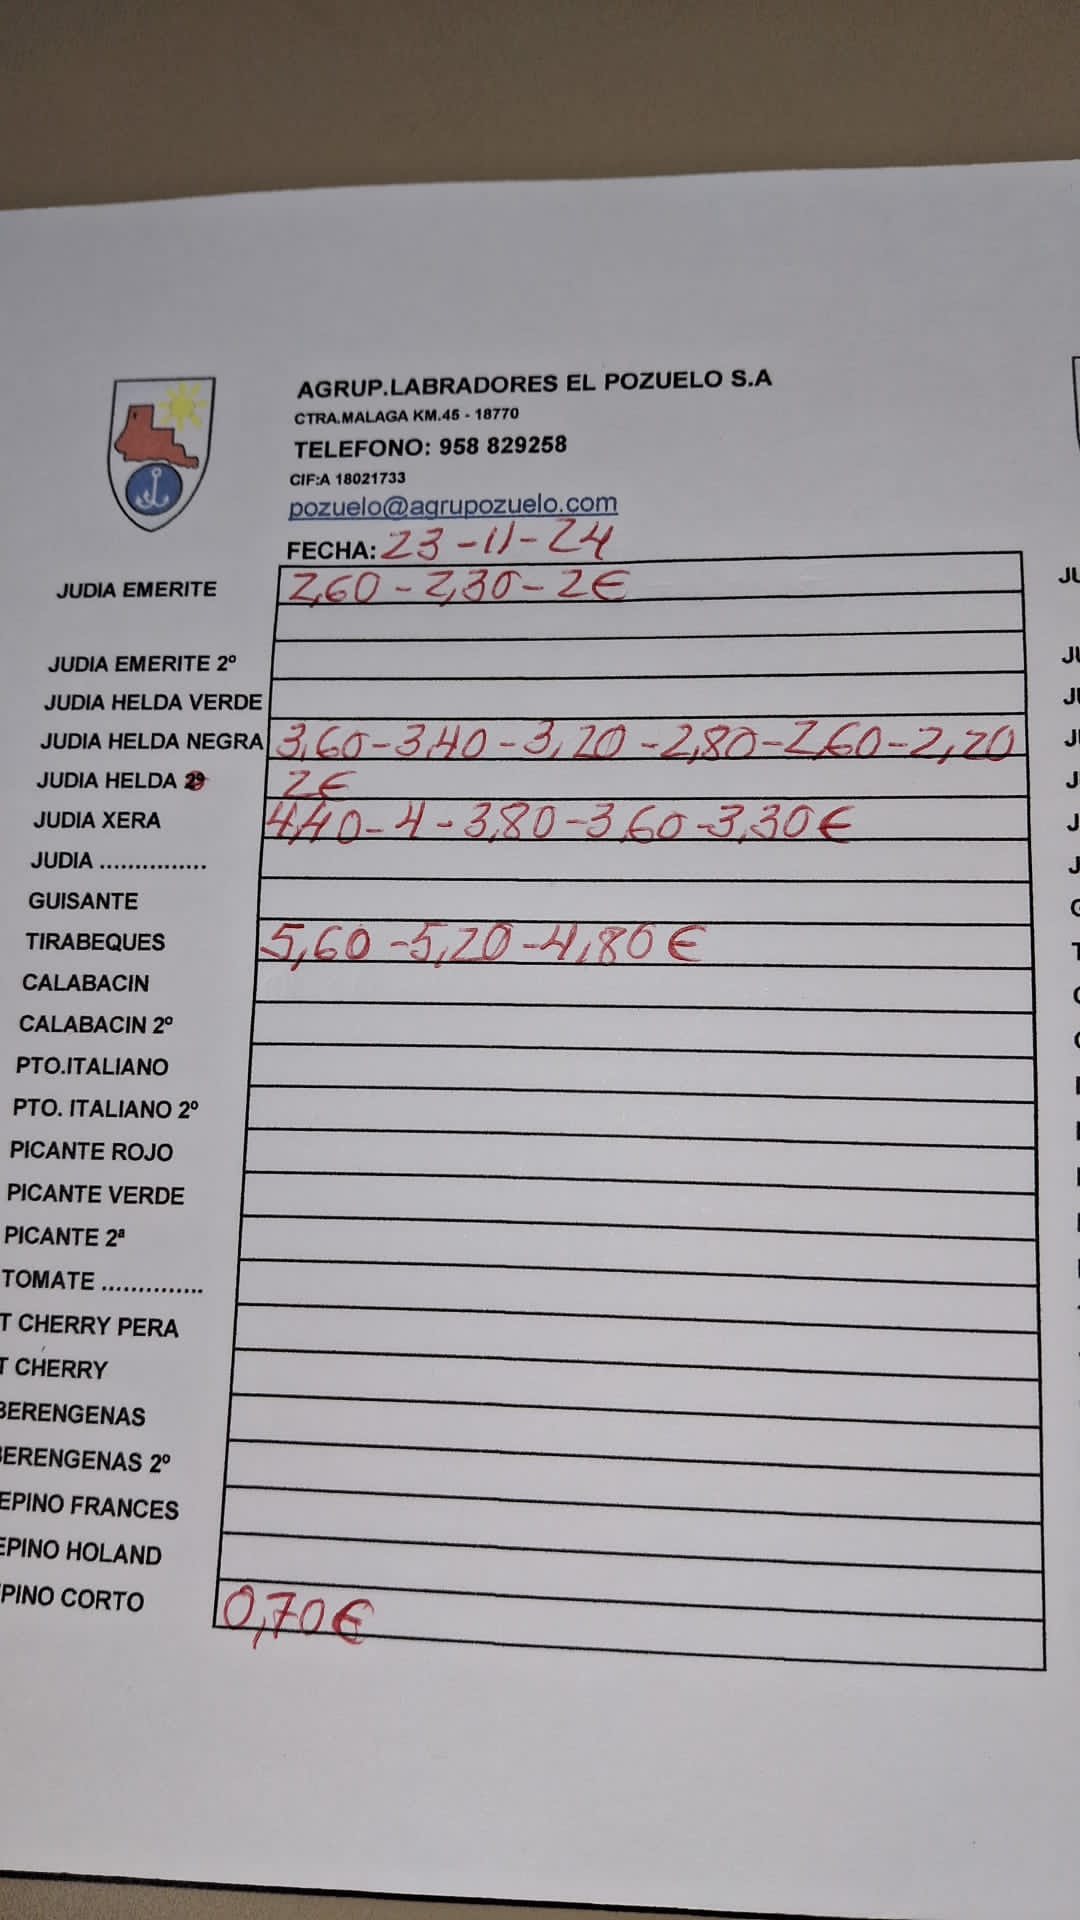 AGRUP.LABRADORES EL POZUELO S.A
CTRA.MALAGA KM.45 - 18770
TELEFONO: 958 829258
CIF:A 18021733
pozuelo@agrupozuelo.com
FECHA: 23-11-24
JUDIA EMERITE 2,60 - 2,30 - 2€
JUDIA EMERITE 2º
JUDIA HELDA VERDE
JUDIA HELDA NEGRA 3,60-3,40-3,20-2,80-2,60-2,20
JUDIA HELDA 2€
JUDIA XERA 4,40-4-3,80-3,60-3,30€
JUDIA ...............
GUISANTE
TIRABEQUES 5,60-5,20-4,80€
CALABACIN
CALABACIN 2º
PTO.ITALIANO
PTO. ITALIANO 2º
PICANTE ROJO
PICANTE VERDE
PICANTE 2ª
TOMATE ..............
T CHERRY PERA
T CHERRY
BERENGENAS
BERENGENAS 2º
EPINO FRANCES
EPINO HOLAND
PINO CORTO 0,70€